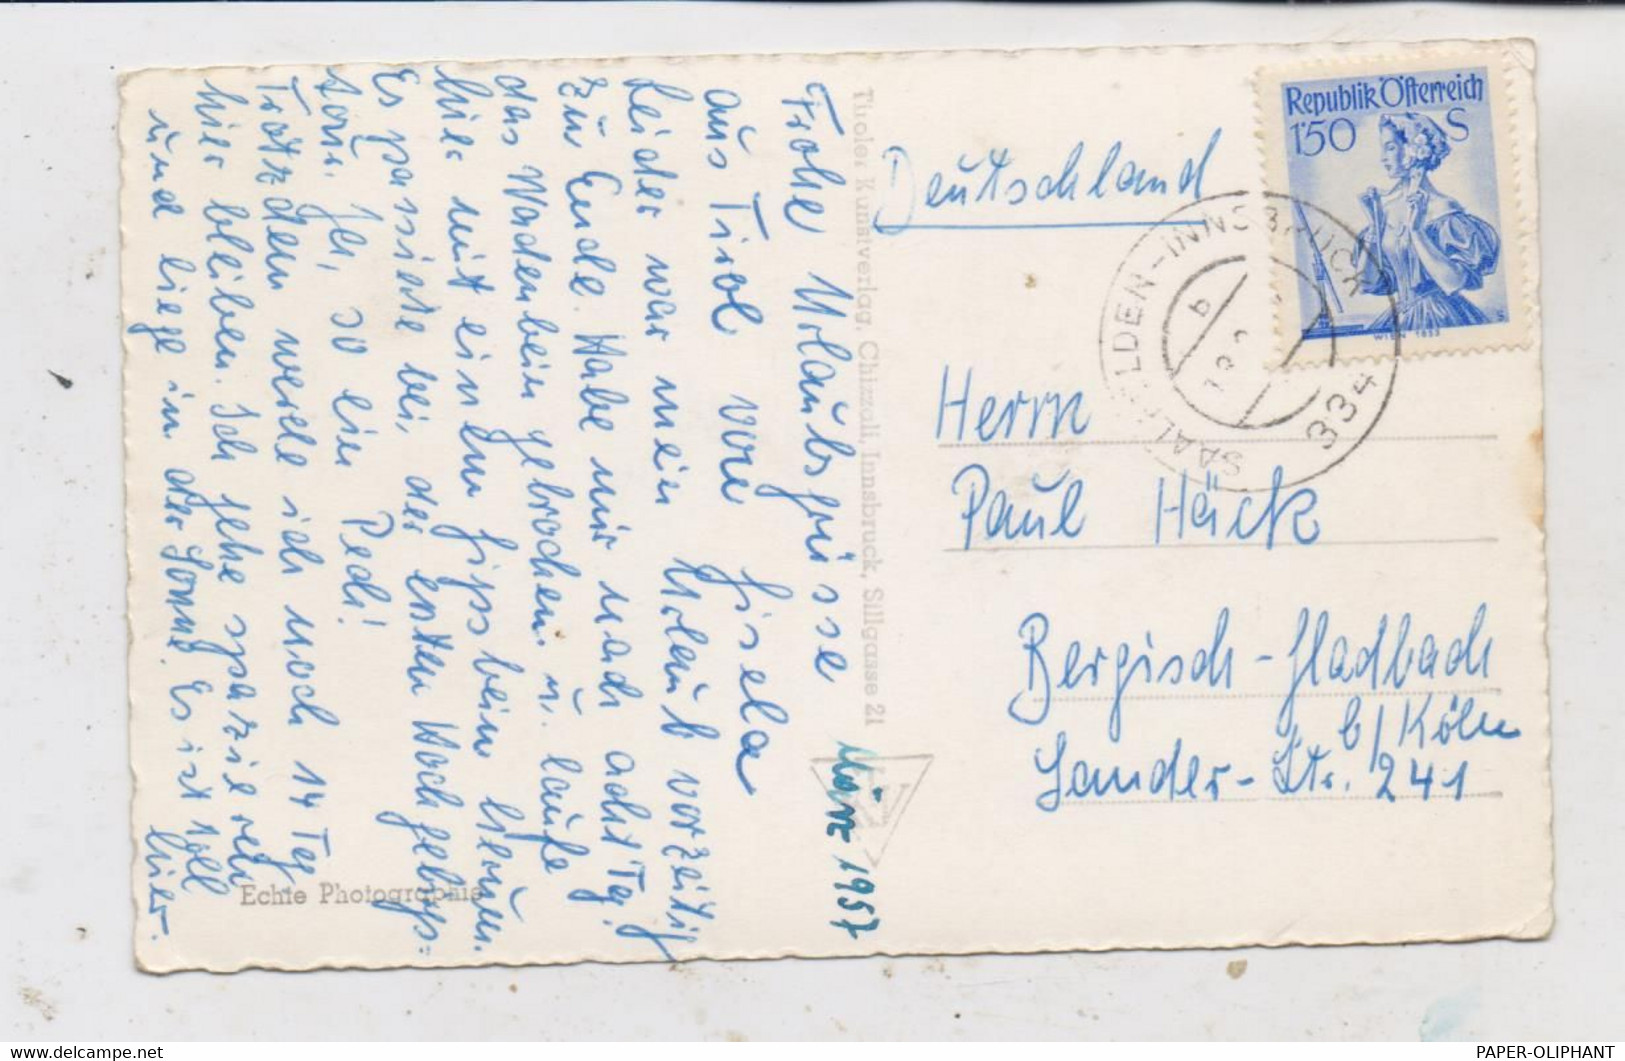 Frohe Urlaubsgrüsse
aus Tirol von Gisela
Leider war mein Urlaub vorzeitig
zu Ende. Habe mir nach acht Tg.
das Wadenbein gebrochen u. laufe
hier mit einem Gipsbein herum.
Es passierte bei, der ersten Hochgebgs=
tour. Ja, so ein Pech!
Trotzdem werde ich noch 14 Tg
hier bleiben. Ich gehe spazieren
und liege in der Sonne. Es ist toll
hier.
Echte Photographie
Tiroler Kunstverlag, Chizzali, Innsbruck, Sillgasse 21
März 1957
Deutschland
Republik Österreich
1'50 S
WIEN 1853
SAALFELDEN-INNSBRUCK
334
b
Herrn
Paul Häck
Bergisch-Gladbach
b/Köln
Sander-Str. 241
PAPER-OLIPHANT